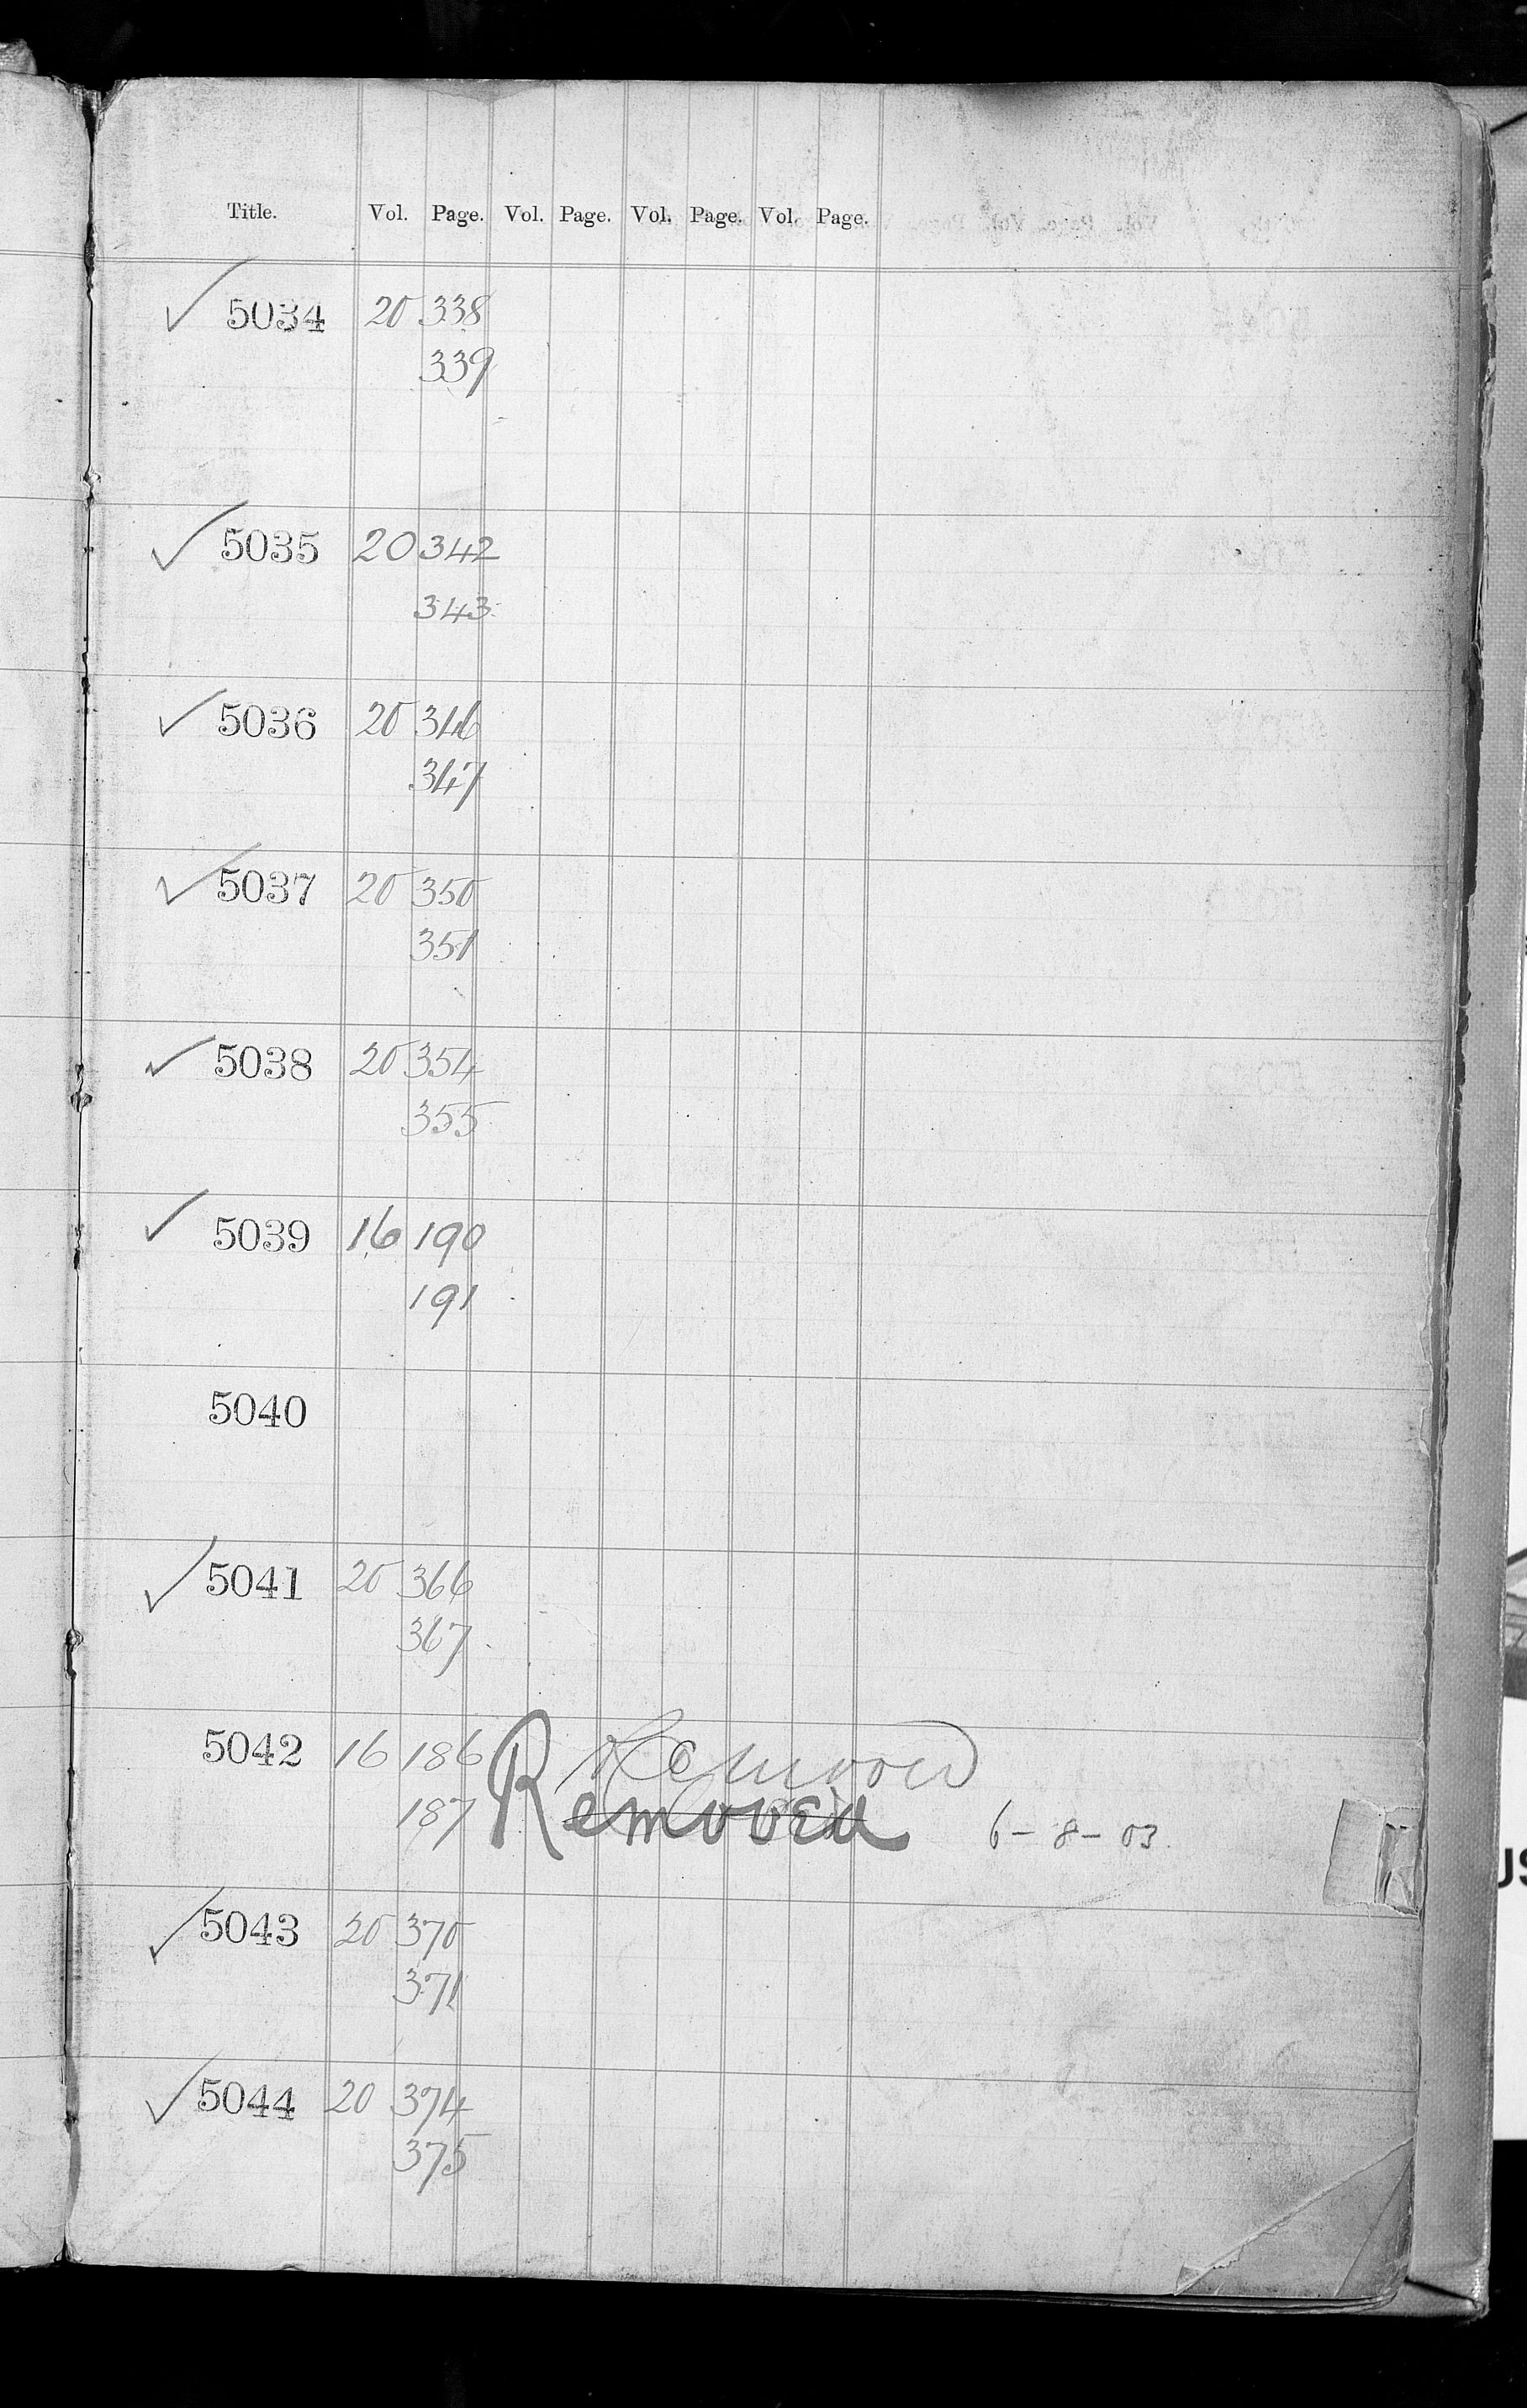 Title. Vol. Page. Vol. Page. Vol. Page. Vol. Page.
✓ 5034 20 338
339
✓ 5035 20 342
343
✓ 5036 20 346
347
✓ 5037 20 350
351
✓ 5038 20 354
355
✓ 5039 16 190
191
5040
✓ 5041 20 366
367
5042 16 186 Removed
187 Removed 6-8-03.
✓ 5043 20 370
371
✓ 5044 20 374
375